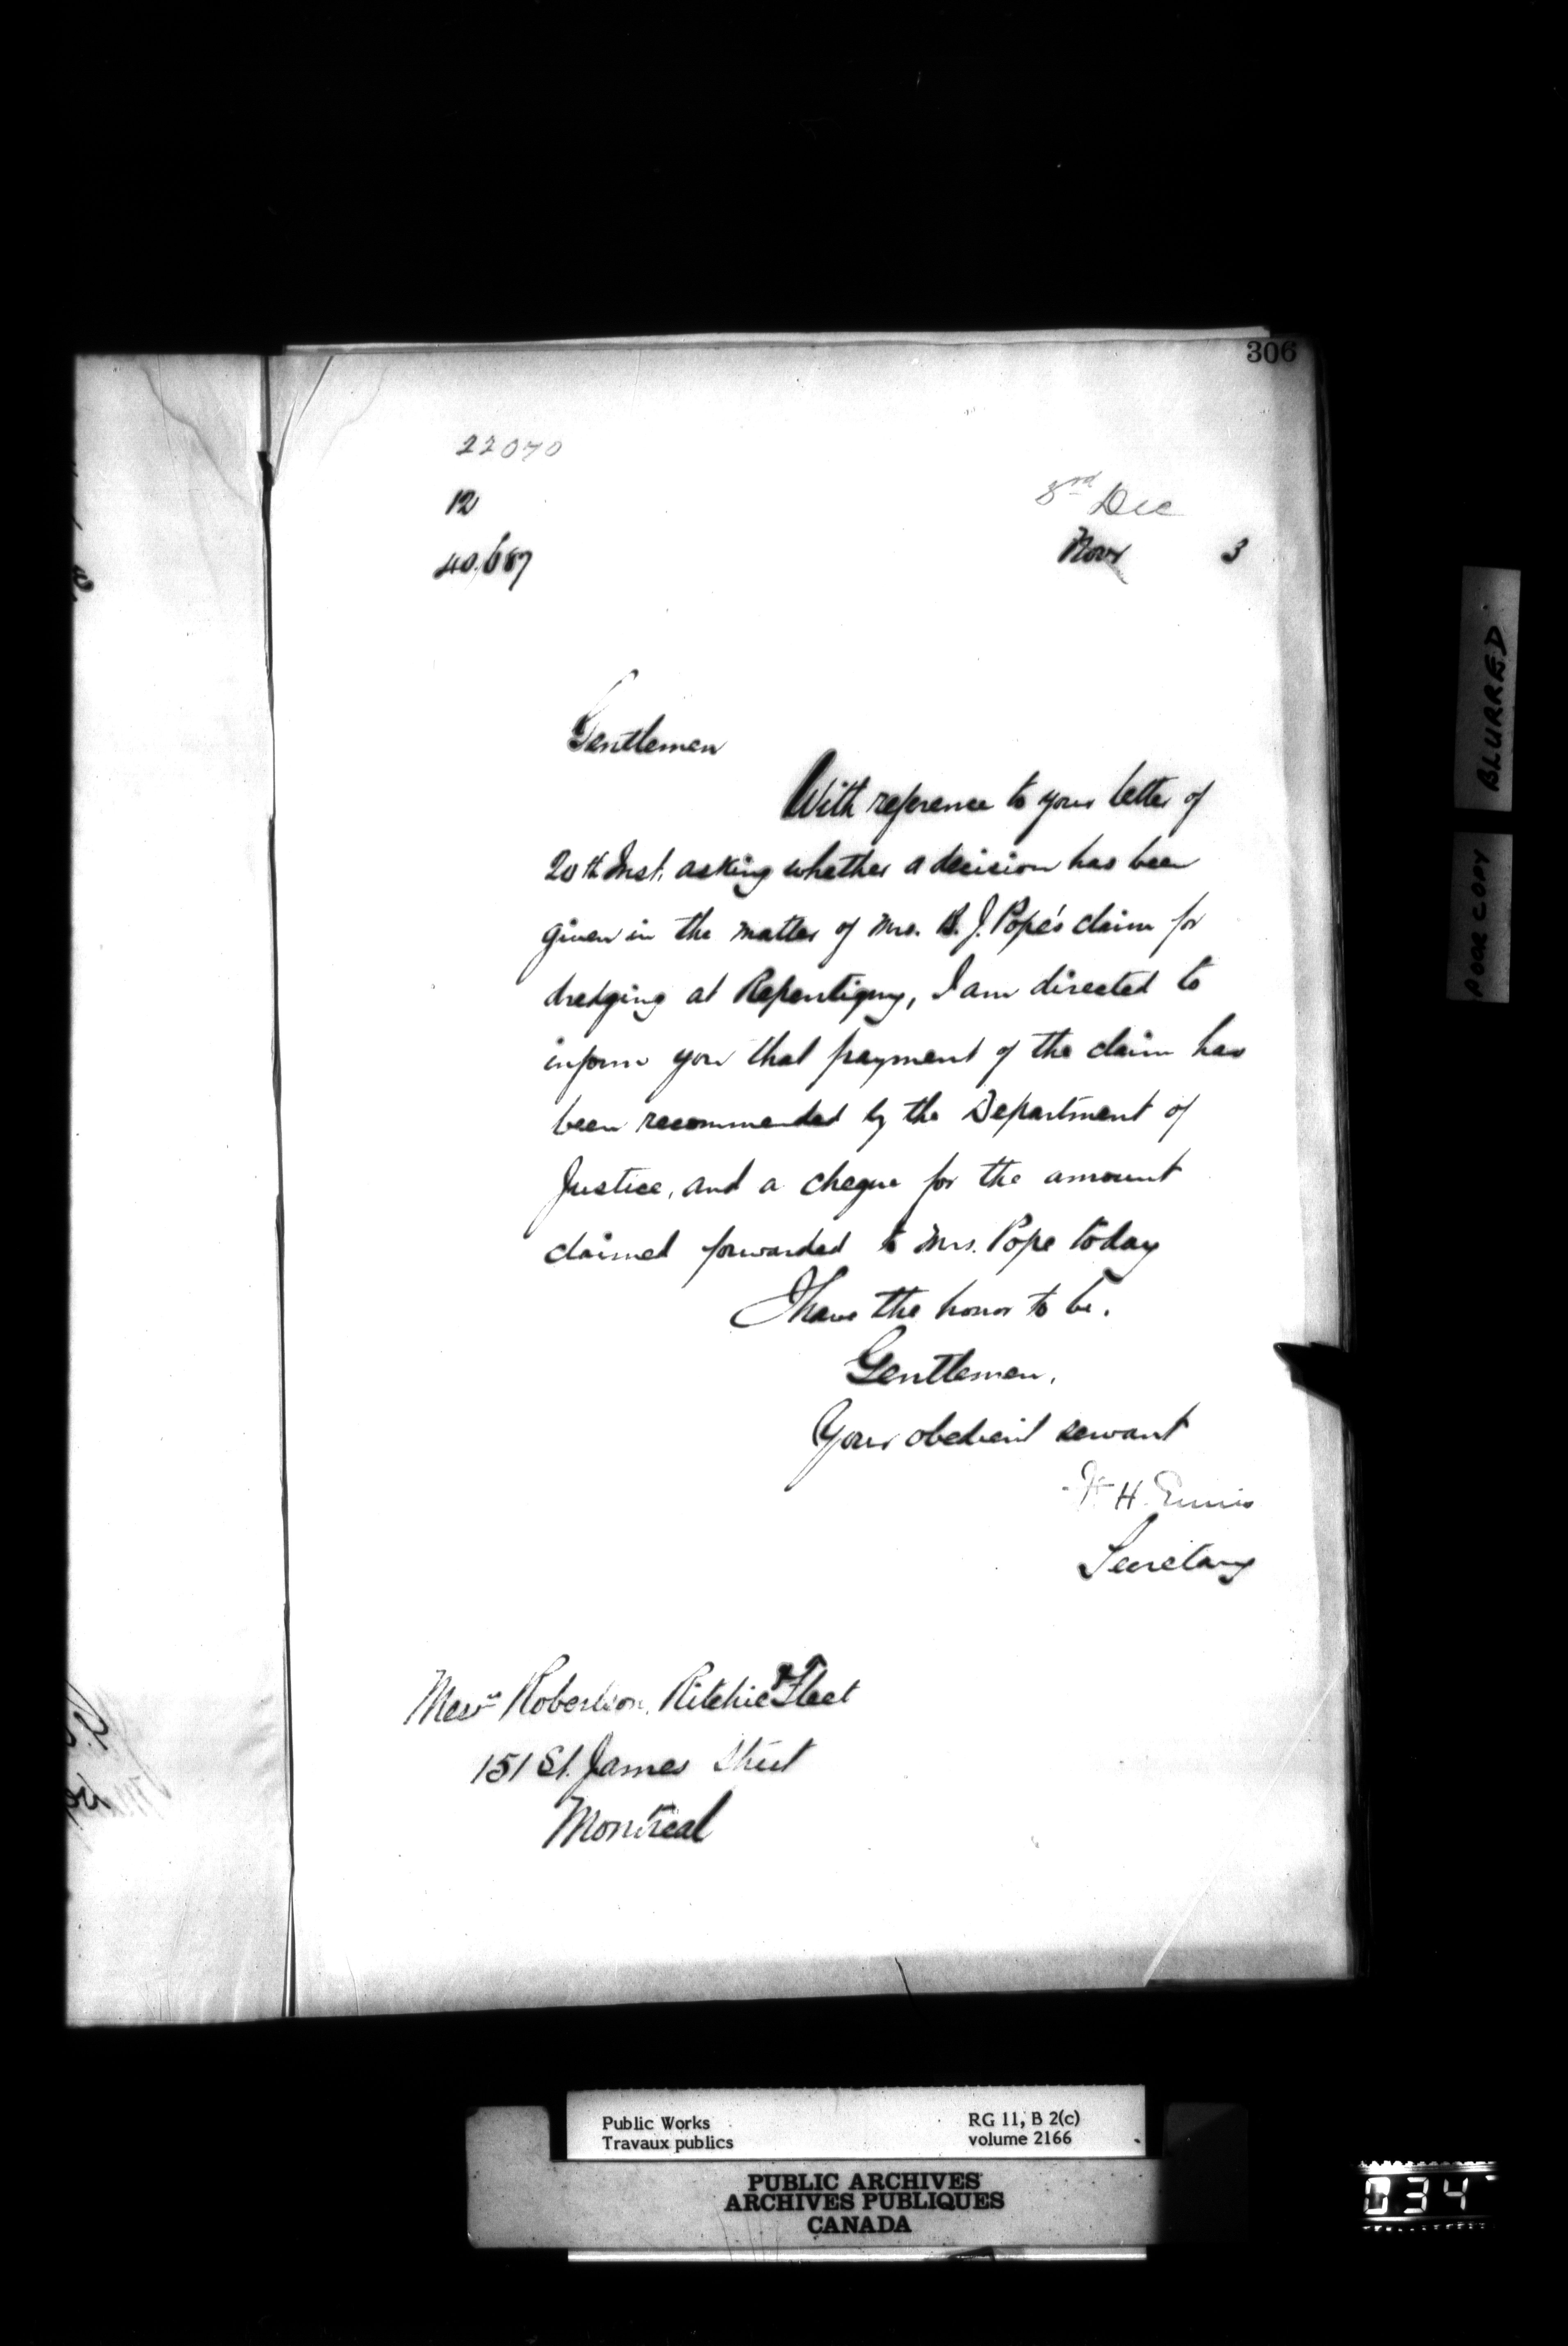 306
22070
12
40,687
3rd Dec
Novr 3
Gentlemen
With reference to your letter of
20th Inst. asking whether a decision has been
given in the matter of Mrs. B. J. Pope's claim for
dredging at Repentigny, I am directed to
inform you that payment of the claim has
been recommended by the Department of
Justice, and a cheque for the amount
claimed forwarded to Mrs. Pope today
I have the honor to be.
Gentlemen,
Your obedient servant
F. H. Ennis
Secretary
Messrs Robertson, Ritchie & Fleet
151 St. James Street
Montreal
BLURRED
POOR COPY
Public Works
Travaux publics
RG 11, B 2(c)
volume 2166
PUBLIC ARCHIVES
ARCHIVES PUBLIQUES
CANADA
034